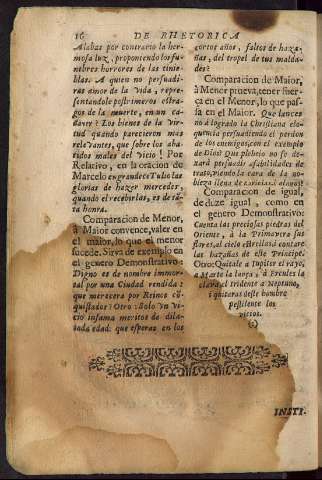 16 DE RHETORICA
Alabas por contrario la her-
mosa luz, proponiendo los fu-
nebres horrores de las tinie-
blas. A quien no persuadi-
ras amor de la vida, repre-
sentandole postrimeros estra-
gos de la muerte, en un ca-
daver? Los bienes de la vir-
tud quando parecieron mas
relevantes, que sobre los aba-
tidos males del vicio! Por
Relativo, en la oracion de
Marcelo engrandece Tulio las
glorias de hazer mercedes,
quando el recebirlas, es de tã-
ta honra.
Comparacion de Menor,
à Maior convence, valer en
el maior, lo que el menor
sucede. Sirva de exemplo en
el genero Demonstrativo:
Digno es de nombre immor-
tal por una Ciudad rendida:
que merecera por Reinos cõ-
quistados? Otro: Solo un vi-
cio infama meritos de dila-
dada edad: que esperas en los
cortos años, faltos de haza-
ñas, del tropel de tus malda-
des?
Comparacion de Maior,
à Menor prueva, tener fuer-
ça en el Menor, lo que pas-
sa en el Maior. Que lances
no à logrado la Christiana elo-
quencia persuadiendo el perdon
de los enemigos, con el exemplo
de Dios? Que plebeio no se de-
xará persuadir afabilidades de
trato, viendo la cara de la no-
bleza llena de
Comparacion de igual,
deduze igual, como en
el genero Demonstrativo:
Cuenta las preciosas piedras del
Oriente, à la Primavera sus
flores, al cielo estrellas: contarè
las hazañas de este Principe.
Otro: Quitale a Jupiter el rayo,
a Marte la lança, à Ercules la
clava, el tridente a Neptuno,
i quitaras deste hombre
pestilente los
vicios.
INSTI-